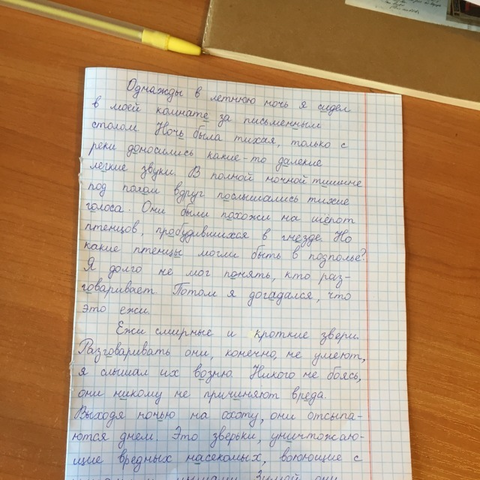 Однажды в летнюю ночь я сидел
в моей комнате за письменным
столом. Ночь была тихая, только с
реки доносились какие-то далекие
легкие звуки. В полной ночной тишине
под полом вдруг послышались тихие
голоса. Они были похожи на шепот
птенцов, пробудившихся в гнезде. Но
какие птенцы могли быть в подполье?
Я долго не мог понять, кто раз-
говаривает. Потом я догадался, что
это ежи.
Ежи смирные и кроткие звери.
Разговаривать они, конечно, не умеют,
я слышал их возню. Никого не боясь,
они никому не причиняют вреда.
Выходя ночью на охоту, они отсыпа-
ются днем. Это зверьки, уничтожаю-
щие вредных насекомых, воюющие с
мышами. Зимой они